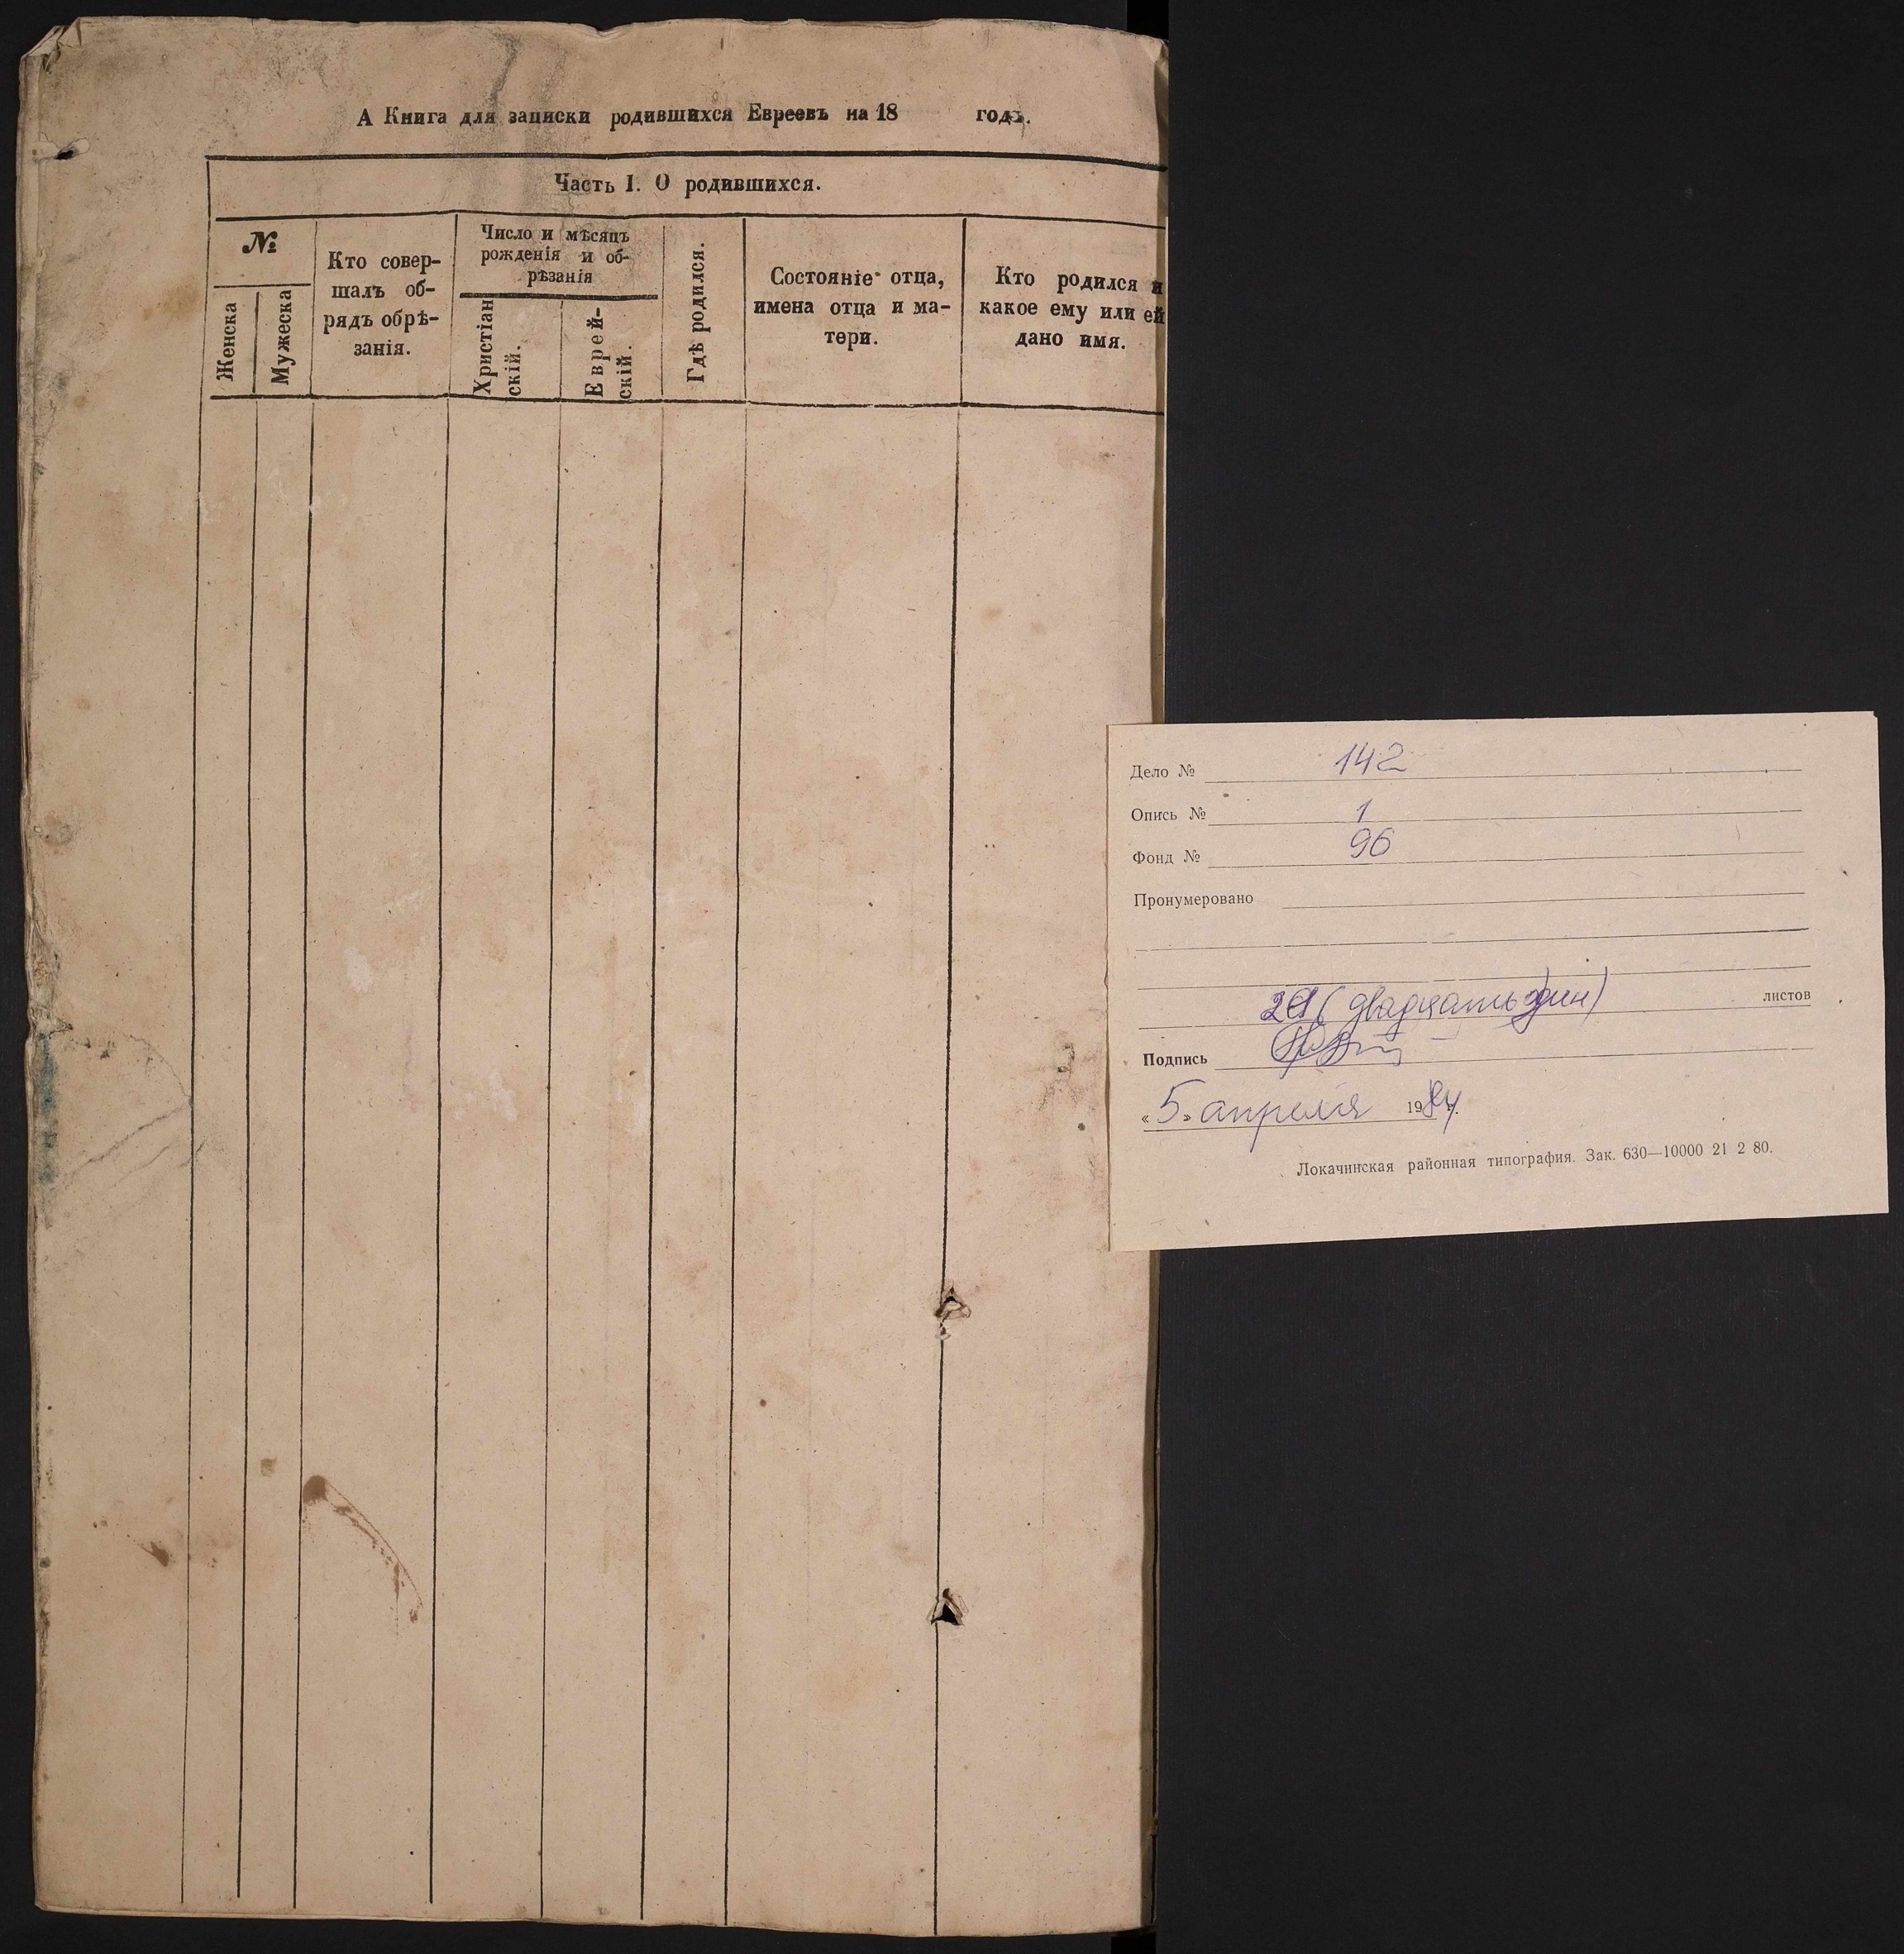 А Книга для записки родившихся Евреевъ на 18 годъ.
Часть I. О родившихся.
№
Женска
Мужеска
Кто совер-
шалъ об-
рядъ обрѣ-
занія.
Число и мѣсяцъ
рожденія и об-
рѣзанія
Христіан
скій.
Еврей-
скій.
Гдѣ родился.
Состояніе отца,
имена отца и ма-
тери.
Кто родился и
какое ему или ей
дано имя.
Дело № 142
Опись № 1
Фонд № 96
Пронумеровано
21 (двадцать один) листов
Подпись
« 5 » апреля 1984 г.
Локачинская районная типография. Зак. 630—10000 21 2 80.